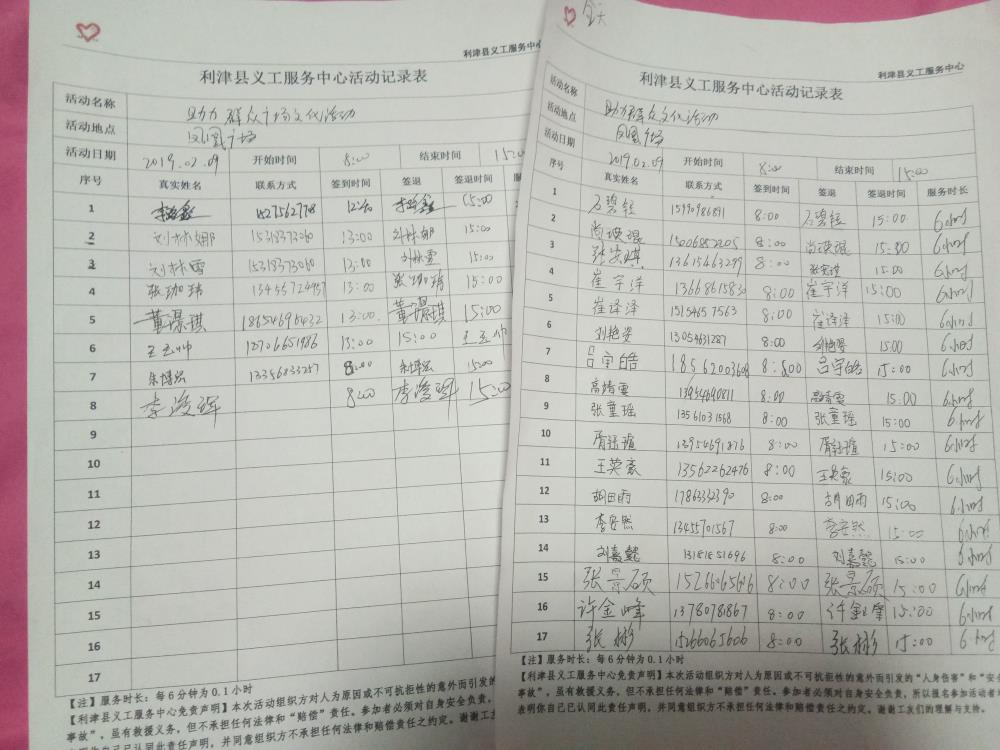 利津县义工服务中心
利津县义工服务中心活动记录表
活动名称 助力群众广场文化活动
活动地点 凤凰广场
活动日期 2019.02.09 开始时间 8:00 结束时间 15:00
序号 真实姓名 联系方式 签到时间 签退 签退时间
1 15:00
2 刘林娜 15318373060 13:00 刘林娜 15:00
3 刘林雪 15318373060 13:00 刘林雪 15:00
4 张珈玮 13455724957 13:00 张珈玮 15:00
5 董瀑琪 18654696432 13:00 董瀑琪 15:00
6 13:00 15:00
7 13356833257 8:00 15:00
8 李浚珲 8:00 李浚珲 15:00
9
10
11
12
13
14
15
16
17
【注】服务时长：每6分钟为0.1小时
【利津县义工服务中心免责声明】本次活动组织方对人为原因或不可抗拒性的意外而引发的
事故”，虽有救援义务，但不承担任何法律和“赔偿”责任。参加者必须对自身安全负责，
表明你自己已认同此责任声明，并同意组织方不承担任何法律和赔偿责任之约定。谢谢工友
全天
利津县义工服务中心
利津县义工服务中心活动记录表
活动名称 助力群众文化活动
活动地点 凤凰广场
活动日期 2019.02.09 开始时间 8:00 结束时间 15:00
序号 真实姓名 联系方式 签到时间 签退 签退时间 服务时长
1 石碧轻 15990986891 8:00 石碧轻 15:00 6小时
2 尚琰琨 15006852205 8:00 尚琰琨 15:00 6小时
3 张安琪 13615463299 8:00 张安琪 15:00 6小时
4 崔宇洋 13668615830 8:00 崔宇洋 15:00 6小时
5 崔译泽 15154657563 8:00 崔译泽 15:00 6小时
6 刘艳姿 13054631287 8:00 刘艳姿 15:00 6小时
7 吕宇皓 18562003608 8:00 吕宇皓 15:00 6小时
8 高靖雯 8:00 高靖雯 15:00 6小时
9 张童瑶 13561031568 8:00 张童瑶 15:00 6小时
10 胥钰瑄 13954691876 8:00 胥钰瑄 15:00 6小时
11 王英豪 13562262476 8:00 王英豪 15:00 6小时
12 胡田雨 17863332390 8:00 胡田雨 15:00 6小时
13 李安然 13455701567 8:00 李安然 15:00 6小时
14 刘嘉懿 13181851696 8:00 刘嘉懿 15:00 6小时
15 张景硕 15266065606 8:00 张景硕 15:00 6小时
16 许金峰 13780781867 8:00 许金峰 15:00 6小时
17 张彬 15266065606 8:00 张彬 15:00 6小时
【注】服务时长：每6分钟为0.1小时
【利津县义工服务中心免责声明】本次活动组织方对人为原因或不可抗拒性的意外而引发的“人身伤害”和“安全
事故”，虽有救援义务，但不承担任何法律和“赔偿”责任。参加者必须对自身安全负责，所以报名参加活动者
表明你自己已认同此责任声明，并同意组织方不承担任何法律和赔偿责任之约定。谢谢工友们的理解与支持。